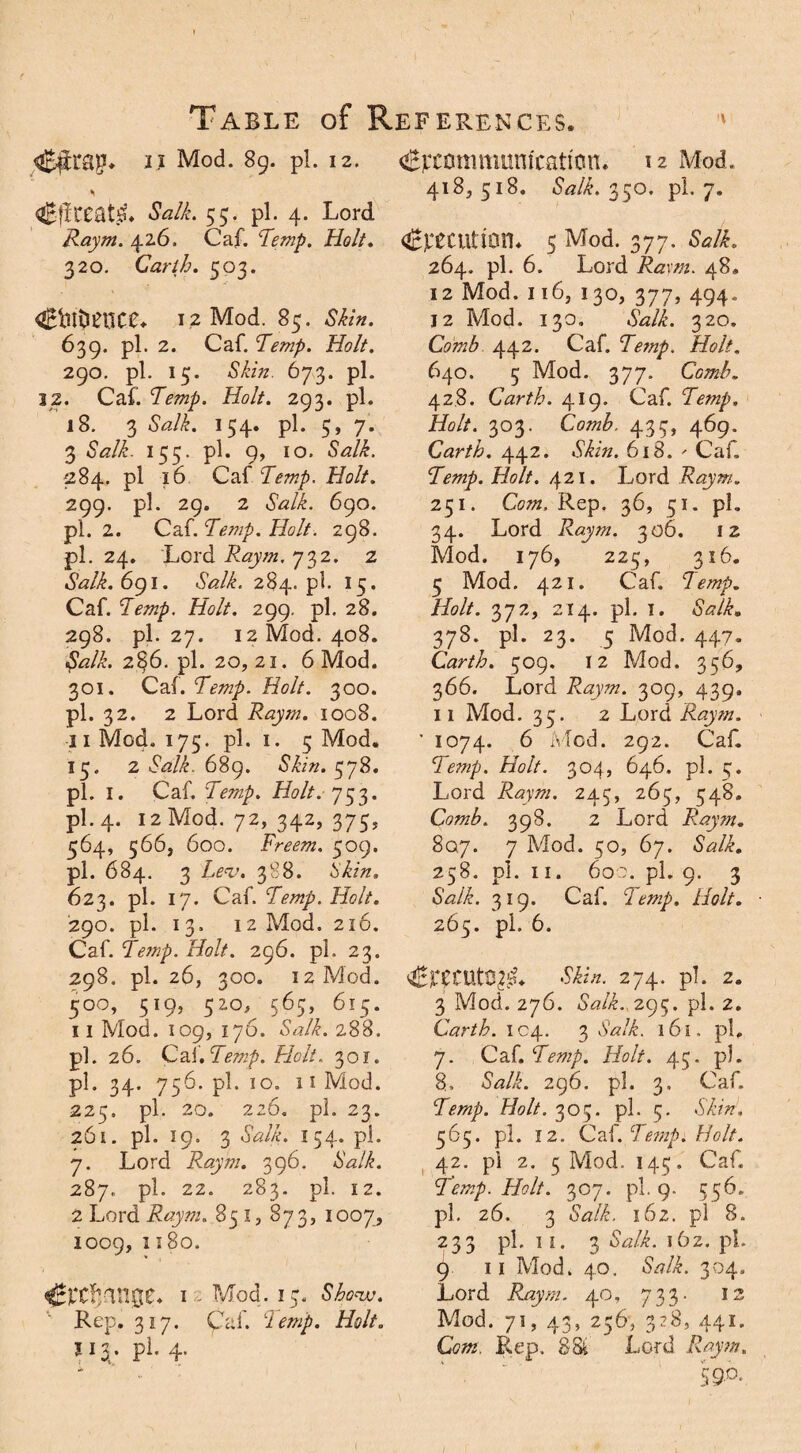 TABLE of REFERENCES.
Estray. 11 Mod. 89. pl. 12.
Estreats. Salk. 55. pl. 4. Lord
Raym. 426. Caf. Temp. Holt.
320. Carth. 503.
Evidence. 12 Mod. 85. Skin.
639. pl. 2. Caf. Temp. Holt.
290. pl. 15. Skin. 673. pl.
12. Caf. Temp. Holt. 293. pl.
18. 3 Salk. 154. pl. 5, 7.
3 Salk. 155. pl. 9, 10. Salk.
284. pl 16 Caf Temp. Holt.
299. pl. 29. 2 Salk. 690.
pl. 2. Caf. Temp. Holt. 298.
pl. 24. Lord Raym. 732. 2
Salk. 691. Salk. 284. pl. 15.
Caf. Temp. Holt. 299. pl. 28.
298. pl. 27. 12 Mod. 408.
Salk. 286. pl. 20, 21. 6 Mod.
301. Caf. Temp. Holt. 300.
pl. 32. 2 Lord Raym. 1008.
11 Mod. 175. pl. 1. 5 Mod.
15. 2 Salk. 689. Skin. 578.
pl. 1. Caf. Temp. Holt. 753.
pl. 4. 12 Mod. 72, 342, 375,
564, 566, 600. Freem. 509.
pl. 684. 3 Lev. 388. Skin.
623. pl. 17. Caf. Temp. Holt.
290. pl. 13. 12 Mod. 216.
Caf. Temp. Holt. 296. pl. 23.
298. pl. 26, 300. 12 Mod.
500, 519, 520, 565, 615.
11 Mod. 109, 176. Salk. 288.
pl. 26. Caf. Temp. Holt. 301.
pl. 34. 756. pl. 10. 11 Mod.
225. pl. 20. 226. pl. 23.
261. pl. 19. 3 Salk. 154. pl.
7. Lord Raym. 396. Salk.
287. pl. 22. 283. pl. 12.
2 Lord Raym. 851, 873, 1007,
1009, 1180.
Exchange. 12 Mod. 15. Show.
Rep. 317. Caf. Temp. Holt.
113. pl. 4.
Excommunication. 12 Mod.
418, 518. Salk. 350. pl. 7.
Execution. 5 Mod. 377. Salk.
264. pl. 6. Lord Raym. 48.
12 Mod. 116, 130, 377, 494.
12 Mod. 130. Salk. 320.
Comb 442. Caf. Temp. Holt.
640. 5 Mod. 377. Comb.
428. Carth. 419. Caf. Temp.
Holt. 303. Comb. 435, 469.
Carth. 442. Skin. 618. Caf.
Temp. Holt. 421. Lord Raym.
251. Com. Rep. 36, 51. pl.
34. Lord Raym. 306. 12
Mod. 176, 225, 316.
5 Mod. 421. Caf. Temp.
Holt. 372, 214. pl. 1. Salk.
378. pl. 23. 5 Mod. 447.
Carth. 509. 12 Mod. 356,
366. Lord Raym. 309, 439.
11 Mod. 35. 2 Lord Raym.
1074. 6 Mod. 292. Caf.
Temp. Holt. 304, 646. pl. 5.
Lord Raym. 245, 265, 548.
Comb. 398. 2 Lord Raym.
807. 7 Mod. 50, 67. Salk.
258. pl. 11. 600. pl. 9. 3
Salk. 319. Caf. Temp. Holt.
265. pl. 6.
Executors. Skin. 274. pl. 2.
3 Mod. 276. Salk. 295. pl. 2.
Carth. 104. 3 Salk. 161. pl.
7. Caf. Temp. Holt. 45. pl.
8. Salk. 296. pl. 3. Caf.
Temp. Holt. 305. pl. 5. Skin.
565. pl. 12. Caf. Temp. Holt.
42. pl 2. 5 Mod. 145. Caf.
Temp. Holt. 307. pl. 9. 556.
pl. 26. 3 Salk. 162. pl 8.
233 pl. 11. 3 Salk. 162. pl.
9 11 Mod. 40. Salk. 304.
Lord Raym. 40, 733. 12
Mod. 71, 43, 256, 328, 441.
Com. Rep. 88 Lord Raym.
590.